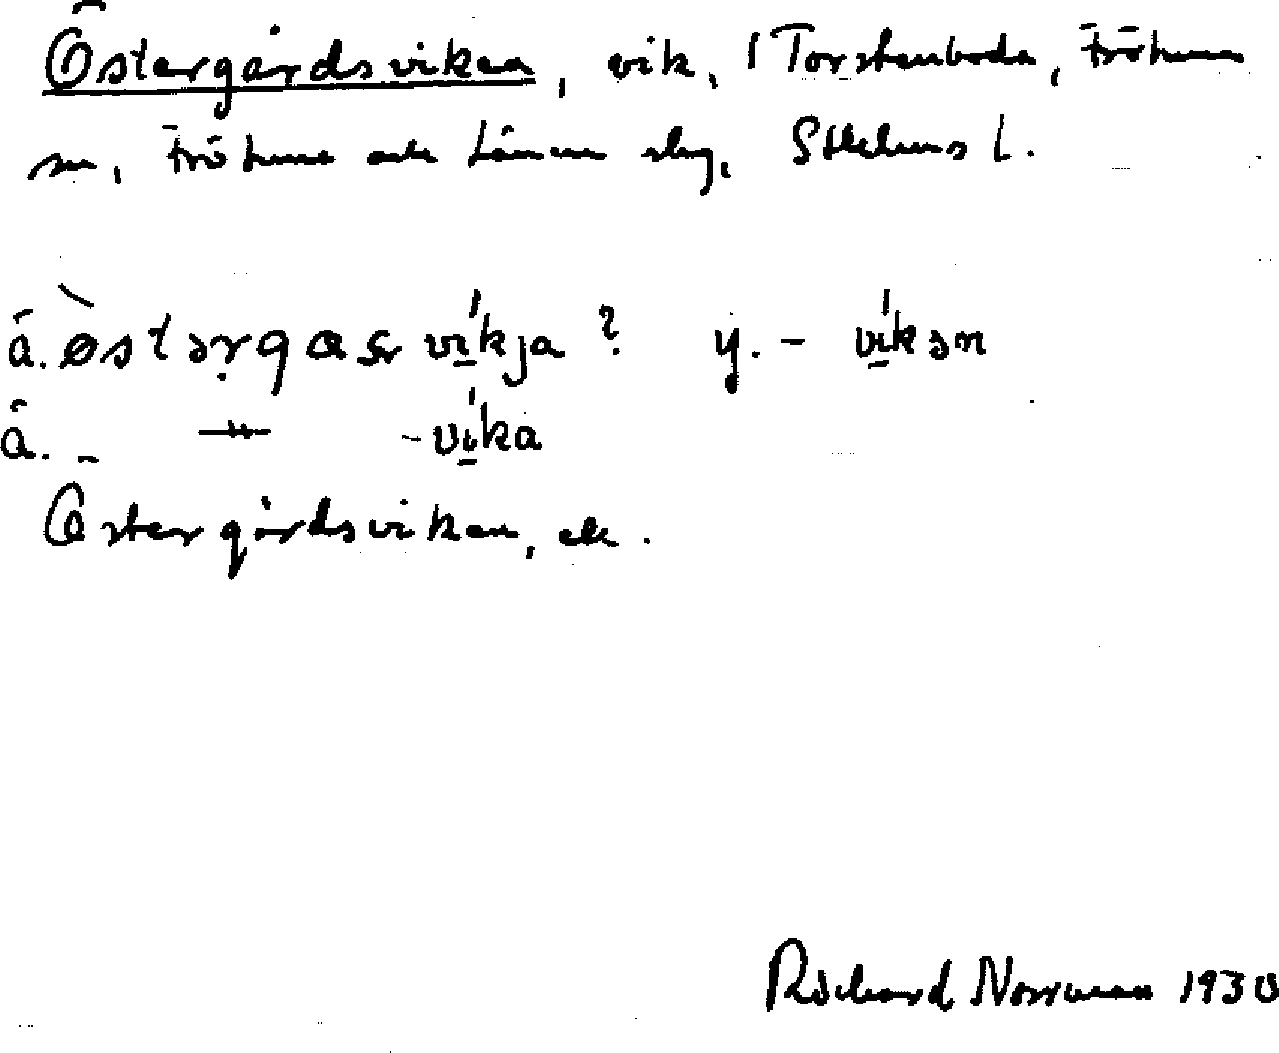 Östergårdsviken, vik, i Torstenboda, Frötuna
sn, Frötuna och Länna slg, Sthlms l.
å. østərgaṣvi̱kja ? y. - vi̱kən
å. - –"– -vi̱ka
Östergårdsviken, ek.
Richard Norrman 1930